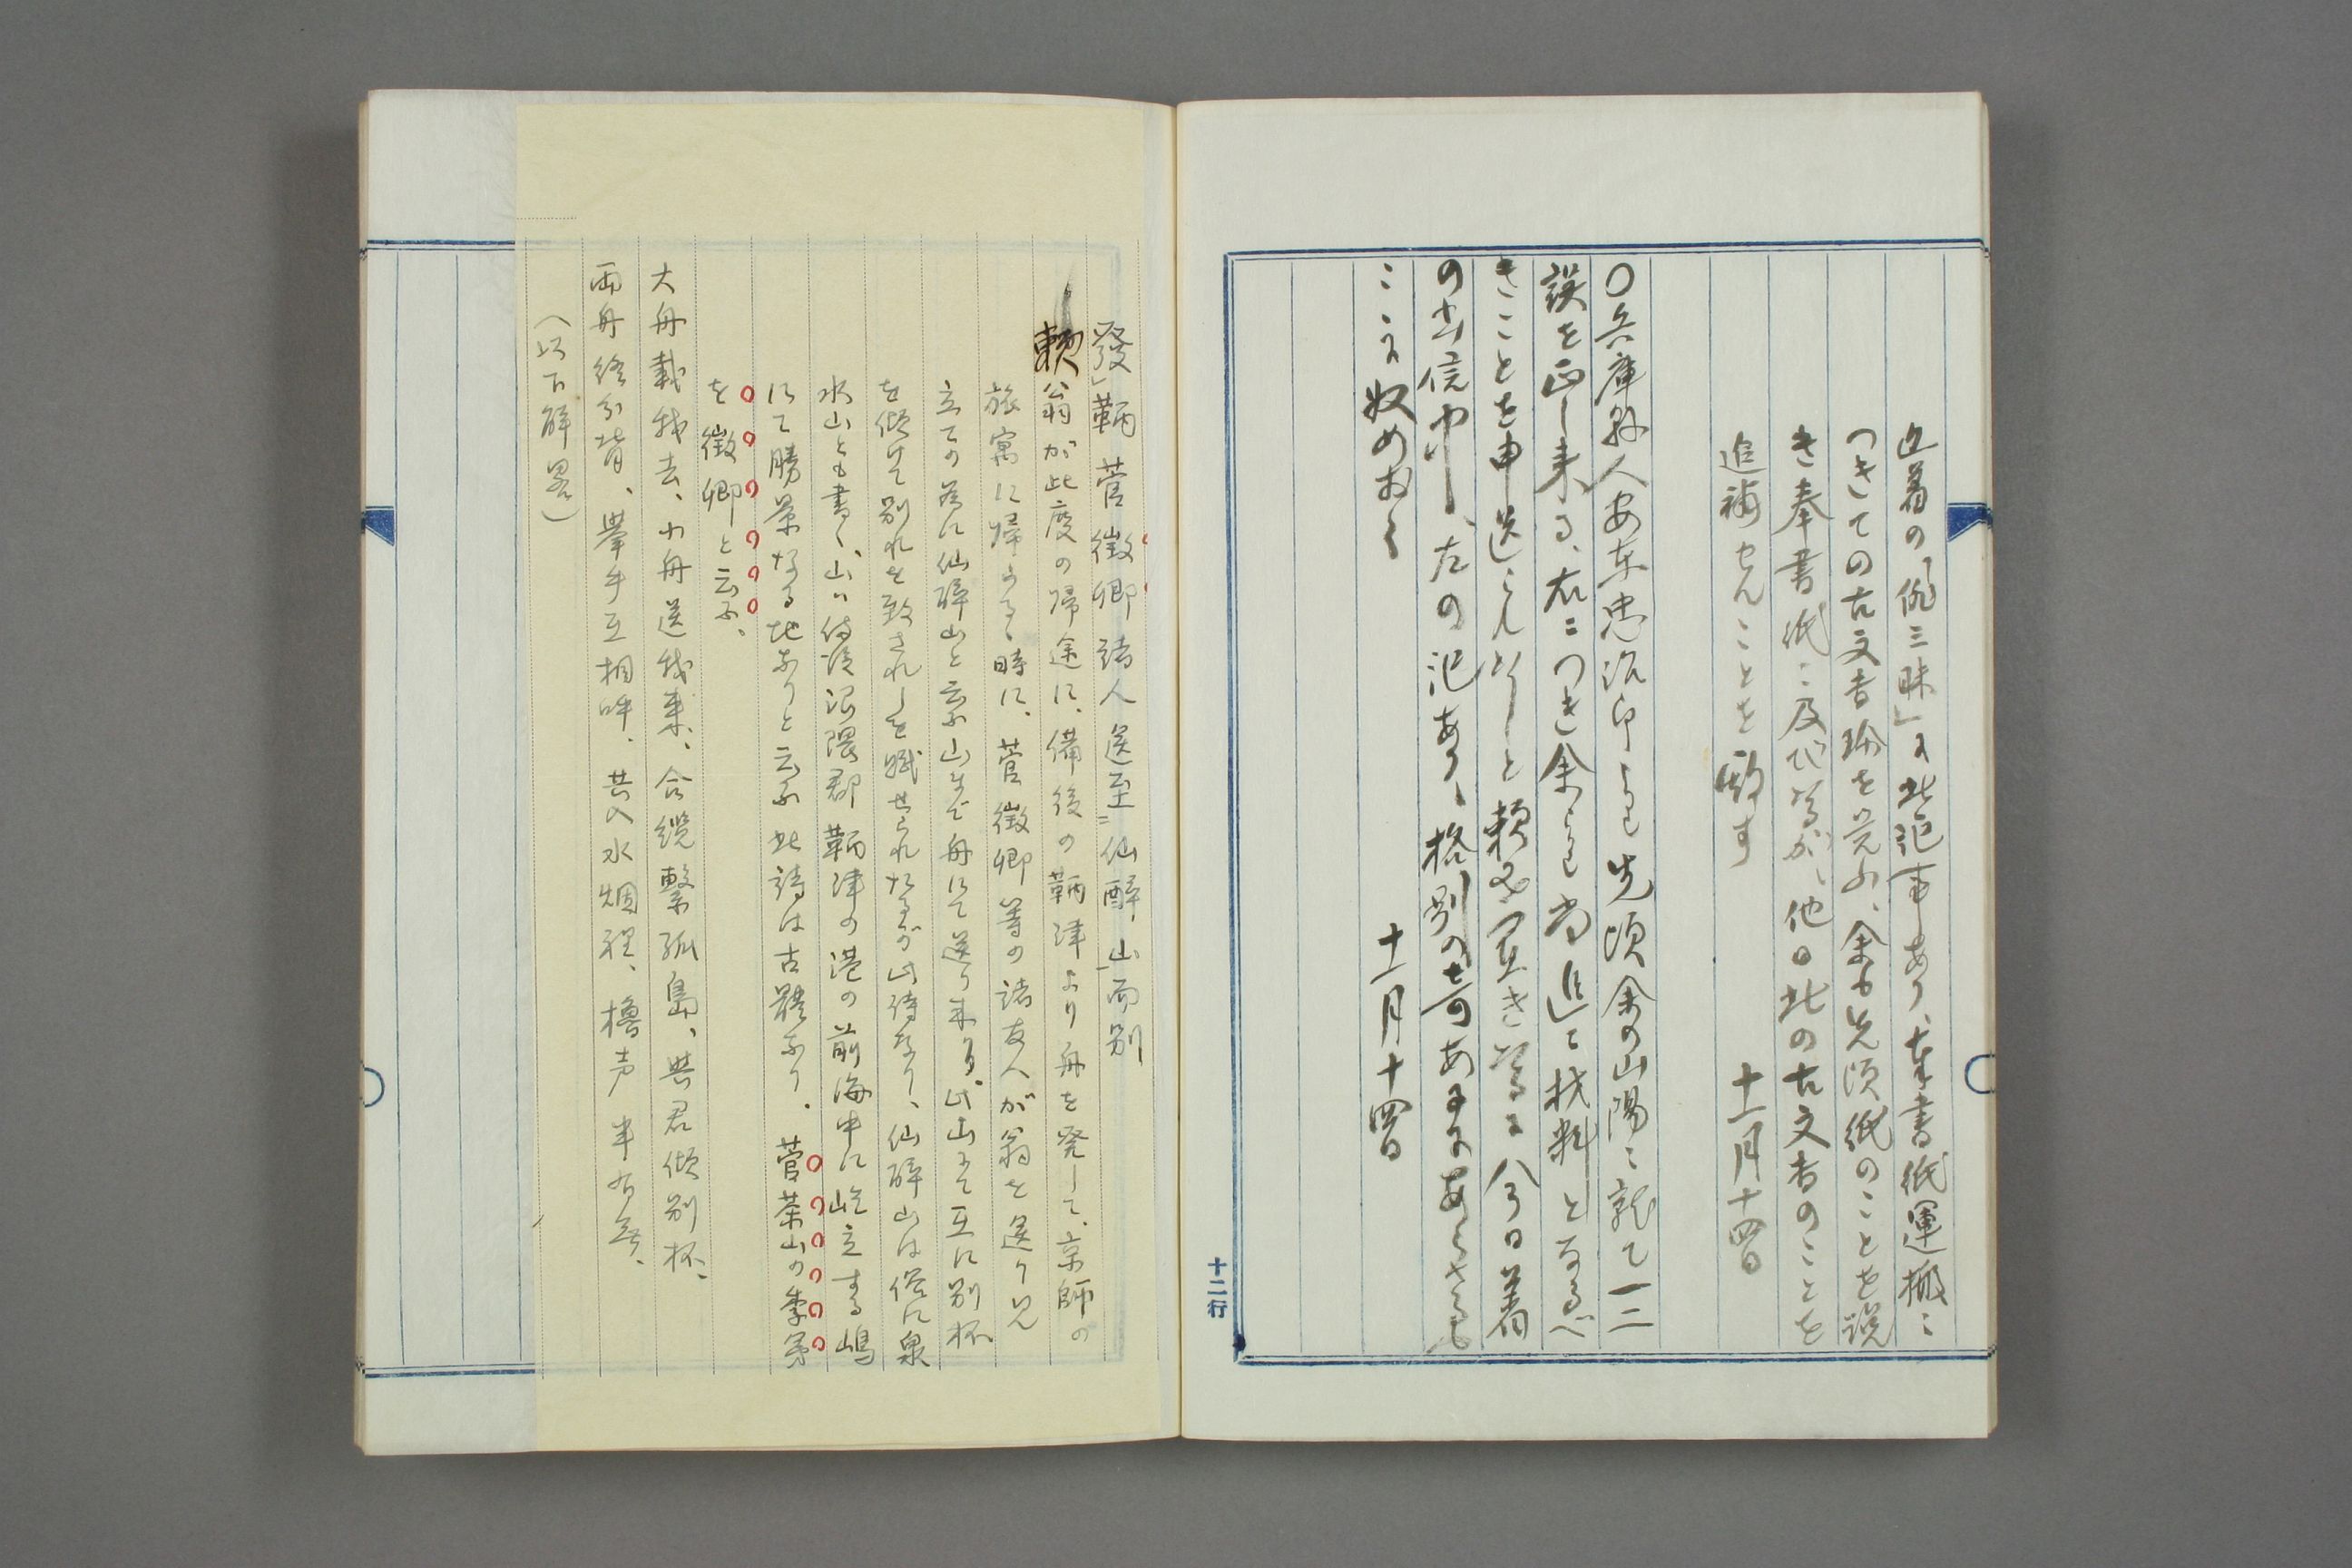 近着の「俳三昧」に此記事あり、奉書紙運搬に
つきての古文書を見ふ、余も先頃紙のことを説
き奉書紙に及びるが、他日此の古文書のことを
追補せんことを
十一月十四日
〇兵庫県人安東忠治郎より先頃余の山陽に就て一二
誤を正し来る、右につき余より尚追て材料となるべ
きことを申送られ度しと頼み置きるに今日着
の書信中に、左の記あり、格別の奇あるにあらさるも
こゝに収めおく
十一月十四日
十二行
發」鞆菅徴卿諸人送至仙醉山而別
頼翁が此度の帰途に、備後の鞆津より舟を発して、京師の
旅寓に帰らるゝ時に、菅徴卿等の諸友人が翁を送り見
立ての為に仙醉山と云ふ山まで舟にて送り来り、此山にて互に別杯
を傾けて別れを致されしを賦せられたるが此詩なり、仙醉山は俗に泉
水山とも書く、山は備後沼隈郡鞆津の港の前海中に屹立する嶋
にて勝景なる地なりと云ふ此詩は古體なり、菅茶山の季弟
を徴卿と云ふ、
大舟載我去、小舟送我来、合纜繋孤島、與君傾別杯、
両舟終分背、擧手互相呼、共入水烟裡、櫓声半有無、
（以下解畧）